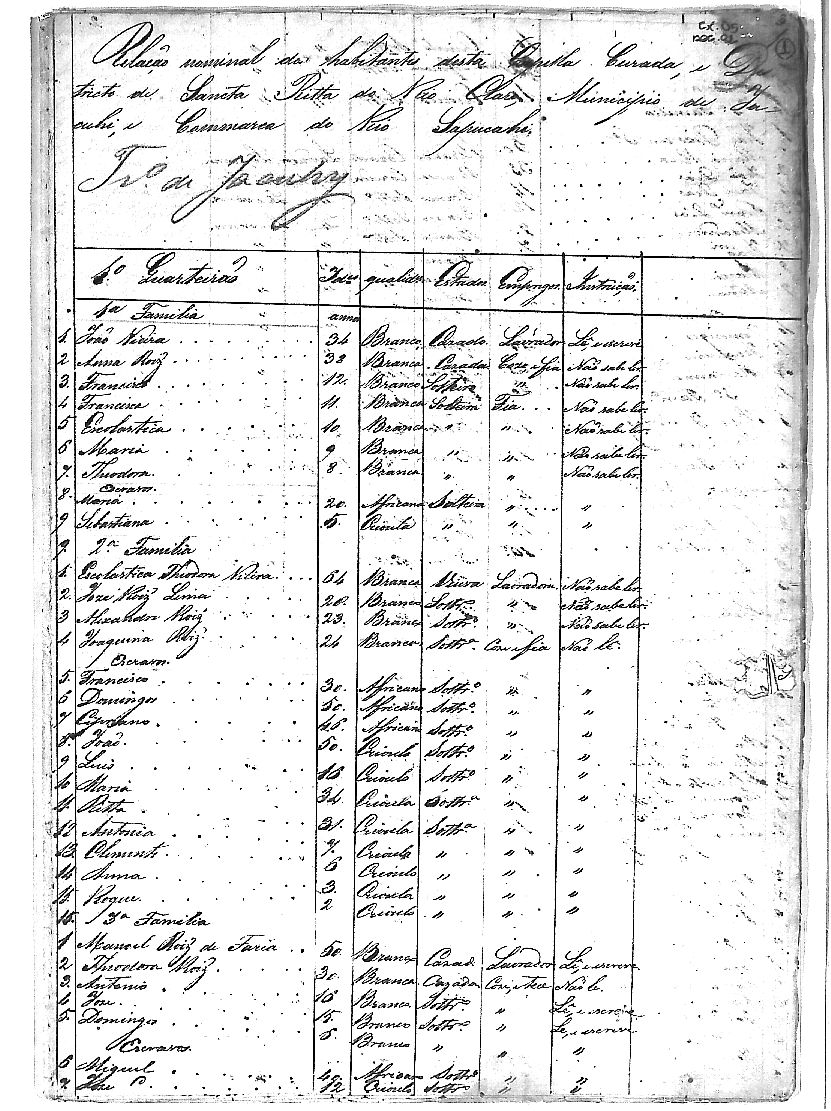 CX. 09
DOC. 01
1
Relação nominal de habitantes desta Capella Curada, e Dis
tricto de Sancta Ritta do Rio Claro Municipio de Ja-
cuhi, e Commarca do Rio Sapucahi.
Tr.º de Jacuhy
1.º Quarteirão Id.es qualid.es Estados Empregos Instrução
1a Familia annos
1. João Vieira 34 Branco Cazado Lavrador Lê, e escreve
2 Anna Roiz 32 Branca Cazada Coze e fia Não sabe ler.
3. Francisco 12. Branco Solteiro " Não sabe ler.
4 Francisca 11. Branca Solteira Fia Não sabe ler.
5 Escolastica 10 Branca " " Não sabe ler.
6 Maria 9 Branca " " Não sabe ler.
7. Theodora 8 Branca " " Não sabe ler.
Escravos
8. Maria 20. Africana Solteira " "
9 Sebastiana 5. Crioula " " "
9. 2a Familia
1. Escolastica Theodora Vieira 64 Branca Viuva Lavradora Não sabe ler.
2. Joze Roiz Lima 20. Branco Soltr.º " Não sabe ler.
3 Alexandre Roiz 23. Branco Soltr.º " Não sabe ler.
4 Joaquina Roiz 24 Branca Soltr.a Coze e fia Não lê.
Escravos
5. Francisco 30. Africano Soltr.º " "
6 Domingos 50. Africano Soltr.º " "
7 Cipriano 45. Africano Soltr.º " "
8. João 50. Crioulo Soltr.º " "
9 Luis 16 Crioulo Soltr.º " "
10 Maria 34 Crioula Soltr.a " "
11 Ritta 31. Crioula Soltr.a " "
12 Antonia 7. Crioula " " "
13. Clemente 6 Crioulo " " "
14 Anna 3. Crioula " " "
15. Roque 2 Crioulo " " "
15. 3a Familia
1 Manoel Roiz de Faria 50. Branco Cazad. Lavrador Lê, e escreve
2 Theodora Roiz 30. Branca Cazada Coze, e tece Não lê.
3. Antonio 16 Branco Soltr.º " Lê, e escreve
4 Joze 15. Branco Soltr.º " Lê, e escreve
5. Domingos 6. Branco " " "
Escravos
6 Miguel 40 Africano Soltr.º " "
7 Joze C. 12 Crioulo Soltr.º " "